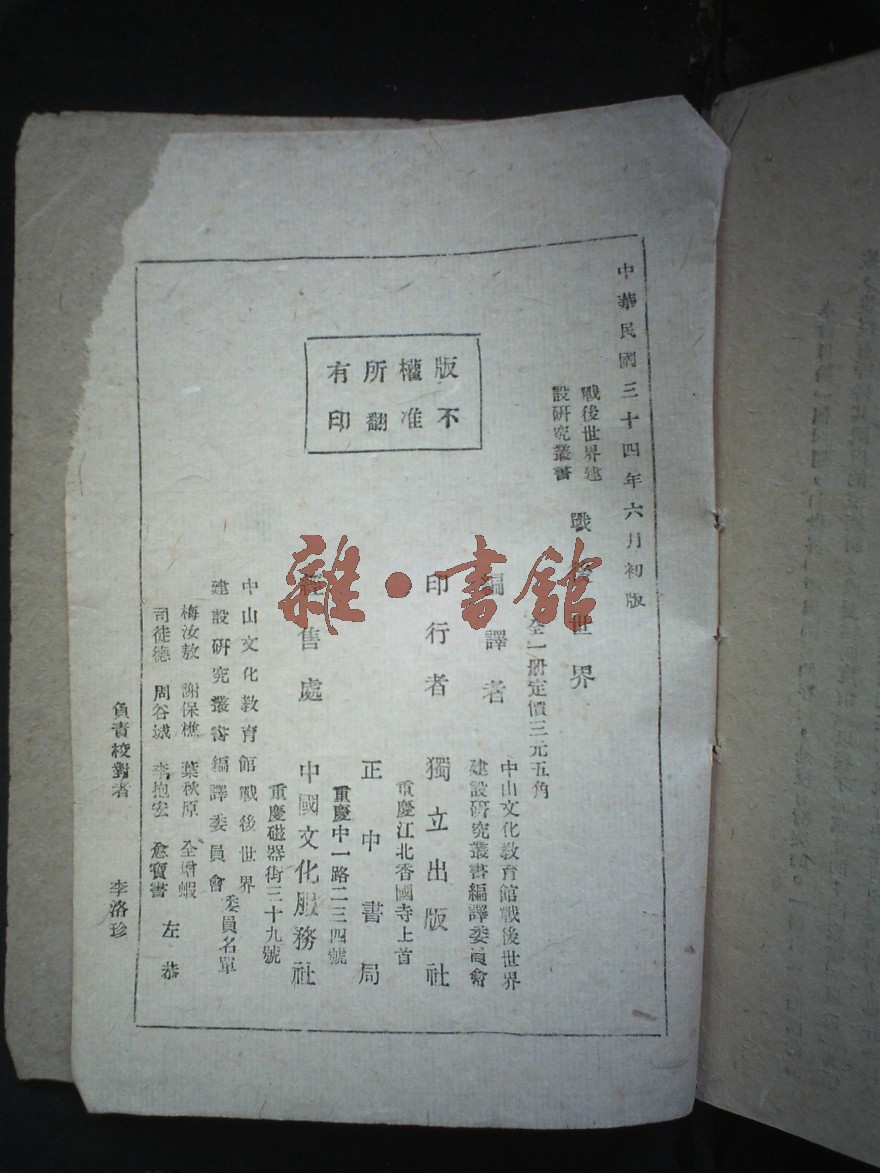 中華民國三十四年六月初版
戰後世界建
設研究叢書
戰後世界
全一册定價三元五角
編譯者
中山文化教育館戰後世界
建設研究叢書編譯委員會
印行者
獨立出版社
重慶江北香國寺上首
正中書局
重慶中一路二三四號
經售處
中國文化服務社
重慶磁器街三十九號
中山文化教育館戰後世界
建設研究叢書編譯委員會
委員名單
梅汝敖 謝保樵 葉秋原 全增嘏
司徒德 周谷城 李抱宏 俞寶書 左恭
負責校對者 李洛珍
版權所有
不准翻印
雜·書館